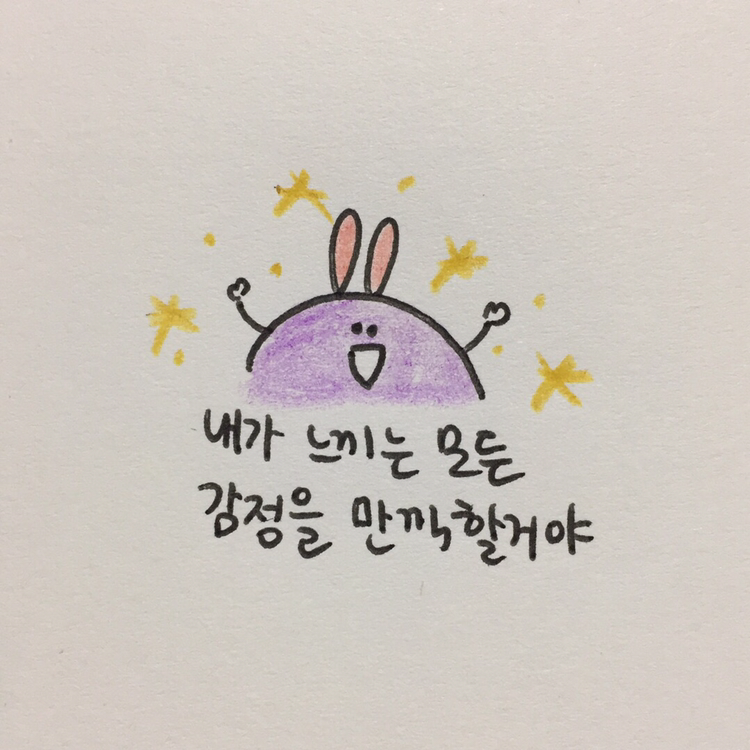 내가 느끼는 모든
감정을 만끽할거야